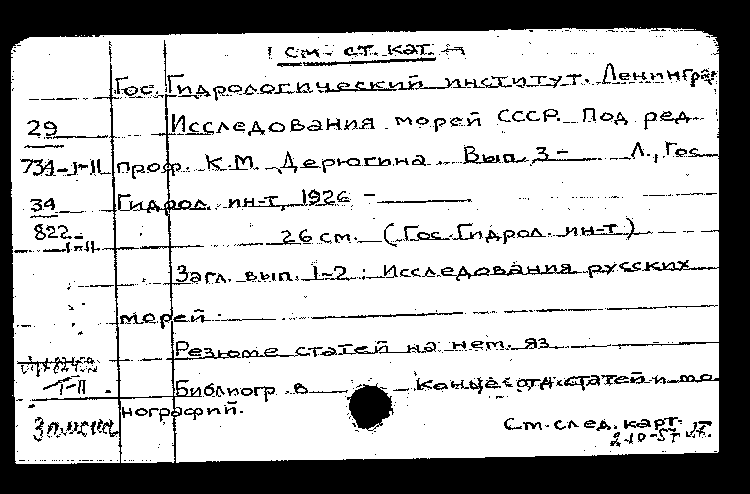 ! см. ст. кат.
Гос. Гидрологический институт. Ленинград
29 Исследования морей СССР. Под ред.
734-I-II проф. К.М. Дерюгина. Вып. 3 - Л., Гос.
34 Гидрол. ин-т, 1926 -
822 I-II 26 см. (Гос. Гидрол. ин-т)
Загл. вып. 1-2: Исследования русских
морей.
Резюме статей на нем. яз.
I-II Библиогр. в конце отд. статей и мо-
нографий.
Замена См. след. карт.
2-10-57